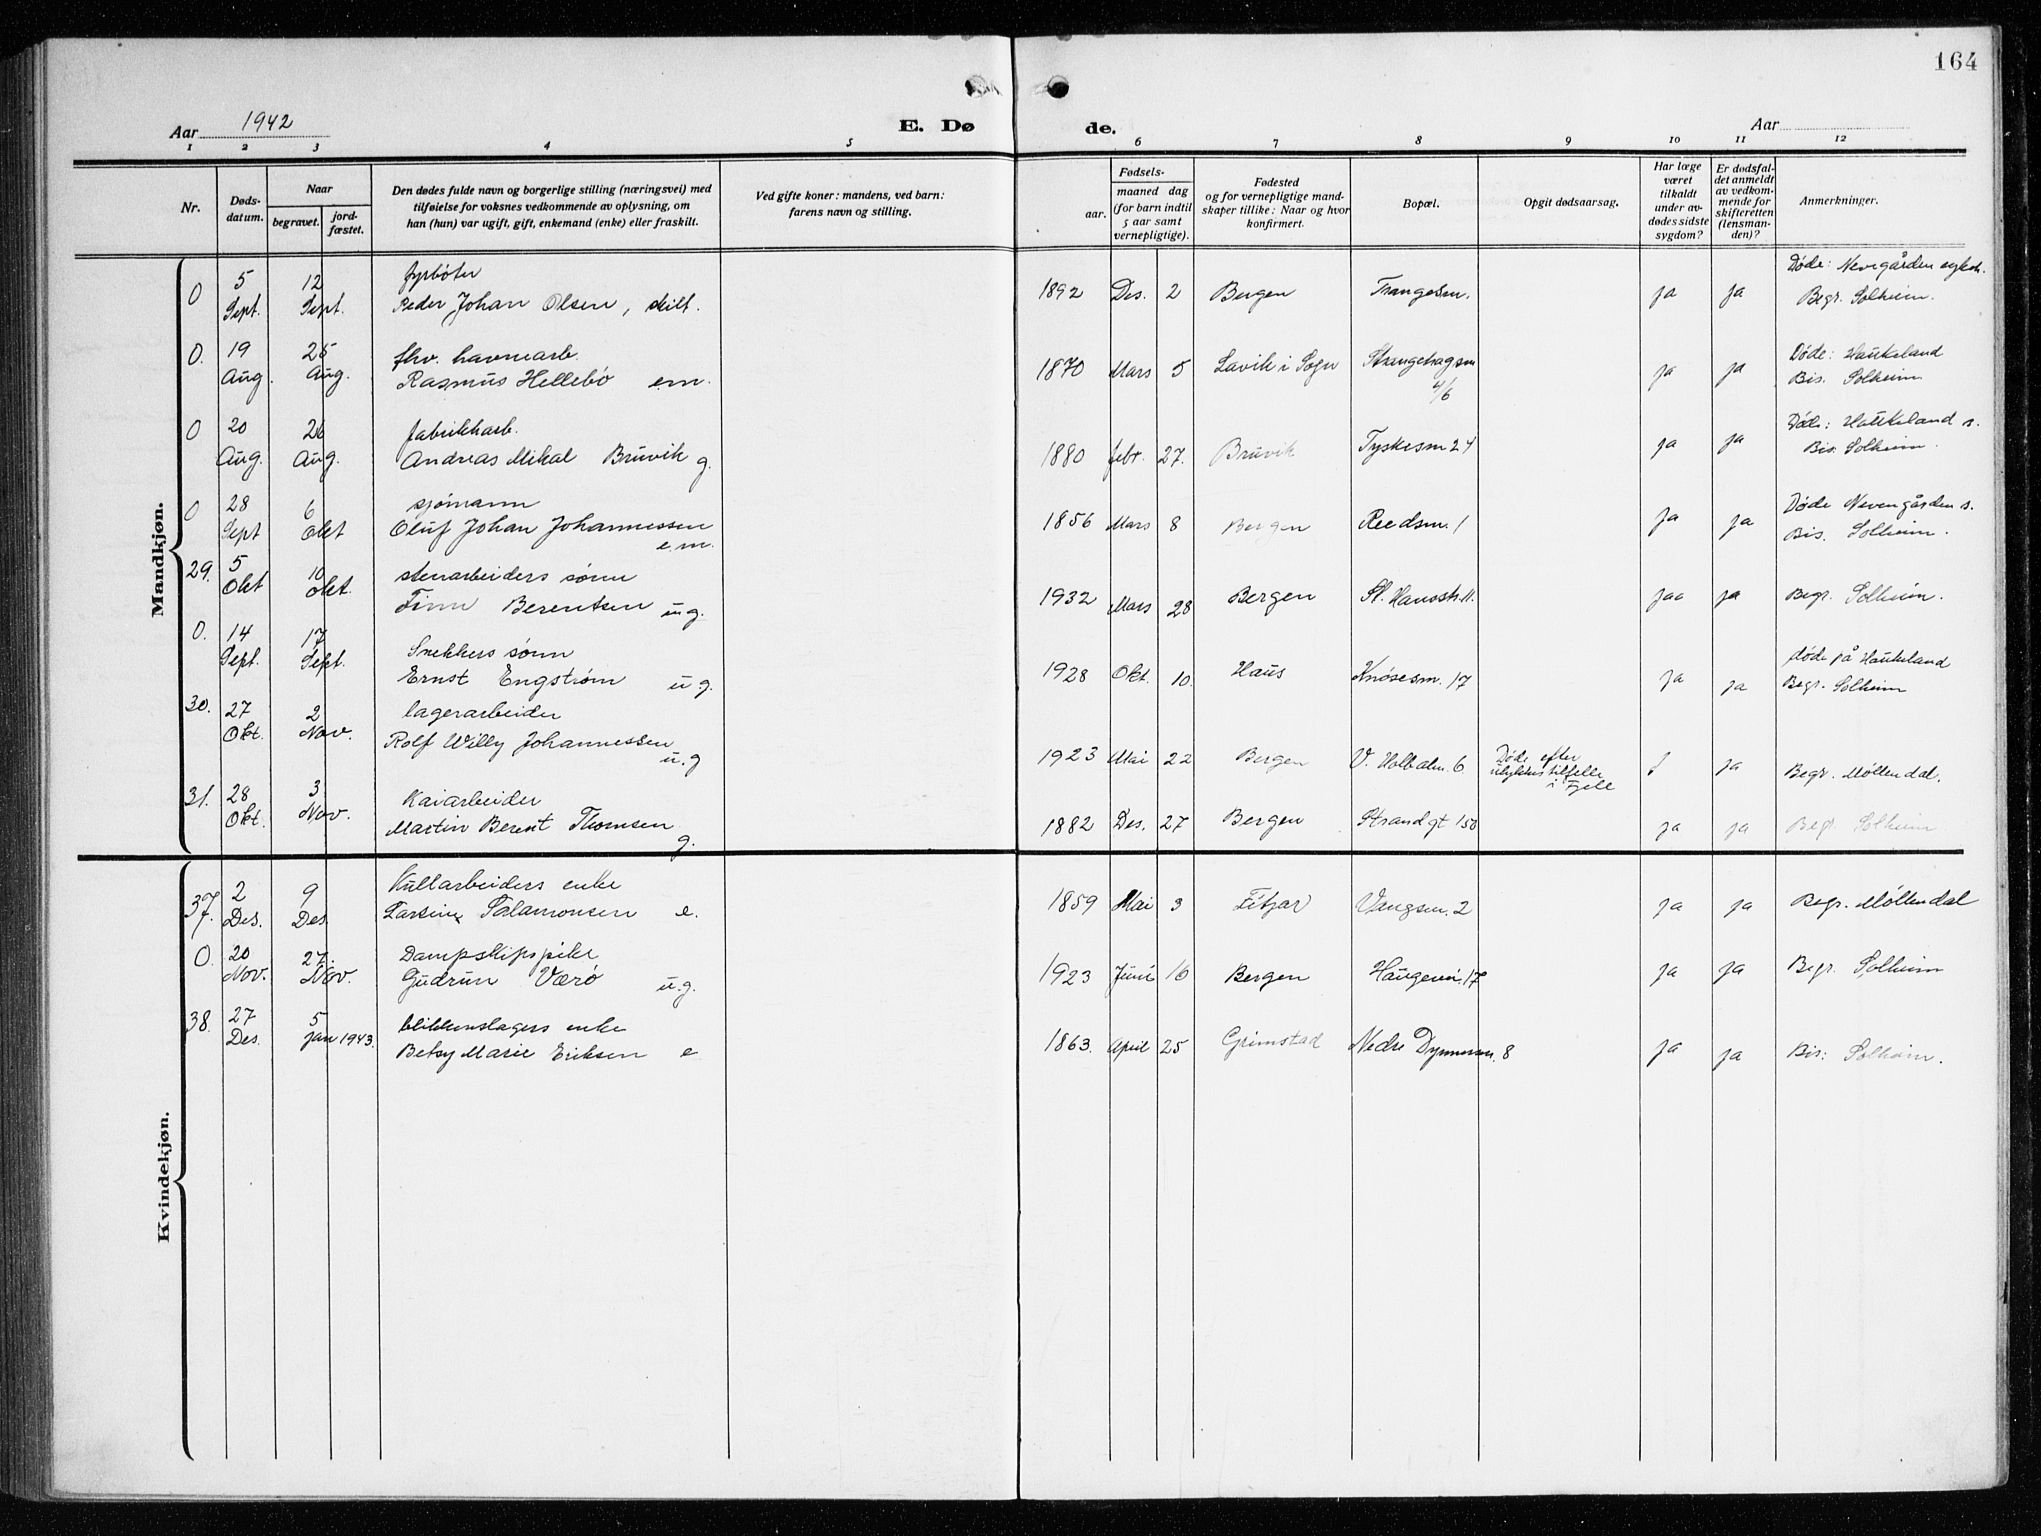 164
Aar 1942
E. Døde.
Aar
1 2 3 4 5 6 7 8 9 10 11 12
Nr.
Døds-
datum.
Naar
begravet.
jord-
fæstet.
Den dødes fulde navn og borgerlige stilling (næringsvei) med
tilføielse for voksnes vedkommende av oplysning, om
han (hun) var ugift, gift, enkemand (enke) eller fraskilt.
Ved gifte koner: mandens, ved barn:
farens navn og stilling.
Fødsels-
aar.
maaned dag
(for barn indtil
5 aar samt
vernepligtige).
Fødested
og for vernepligtige mand-
skaper tillike: Naar og hvor
konfirmert.
Bopæl.
Opgit dødsaarsag.
Har læge
været
tilkaldt
under av-
dødes sidste
sygdom?
Er dødsfal-
det anmeldt
av vedkom-
mende for
skifteretten
(lensman-
den)?
Anmerkninger.
Mandkjøn.
0 5 12 fyrbøter
Sept. Sept. Peder Johan Olsen, skilt. 1892 Des. 2 Bergen Trangesm. ja ja Døde: Nevegården sykeh.
Begr. Solheim.
0. 19 25 fhv. havnearb.
Aug. Aug. Rasmus Hellebø em. 1870 Mars 5 Lavik i Sogn Strangehagen ja ja Døde: Haukeland
4/6 Bis. Solheim
0 20 26 fabrikkarb.
Aug. Aug. Andreas Mikal Bruvik g. 1880 febr. 27. Bruvik Tyskesm 24 ja ja Døde: Haukeland s.
Bis. Solheim.
0 28 6 sjømann
Sept Okt Oluf Johan Johannessen e.m. 1856 Mars 8 Bergen Reedsm. 1 ja ja Døde Nevengården s.
Bis. Solheim.
29. 5 10 stenarbeiders sønn
Okt okt. Finn Berentsen u.g. 1932 Mars 28 Bergen St. Hansstr. 11. jaa ja Begr. Solheim.
0. 14 17 Snekkers sønn
Sept. Sept. Ernst Engstrøm u g. 1928 Okt. 10. Haus Knøsesm. 17 ja ja døde på Haukeland
Begr. Solheim
30. 27 2 lagerarbeider
Okt. Nov. Rolf Willy Johannessen u.g 1923 Mai 22 Bergen V. Holbalm. 6 Døde efter
ulykkestilfelle
i ja Begr. Møllendal.
31. 28 3 Kaiarbeider
Okt. Nov. Martin Berent Thomsen g. 1882 Des. 27 Bergen Strandgt 150 ja ja Begr. Solheim
Kvindekjøn.
37. 2 9 Kullarbeiders enke
Des. Des. Larsine Salamonsen e. 1859 Mai 3 Fitjar Vangsm. 2 ja ja Begr. Møllendal
0. 20 27. Dampskipspike
Nov. Nov. Gudrun Værø u.g. 1923 Juni 16 Bergen Haugevei. 17 ja ja Begr. Solheim
38. 27 5 blikkenslagers enke
Des. jan 1943. Betsy Marie Eriksen e 1863. April 25 Grimstad Nedre 8 ja ja Bis: Solheim.